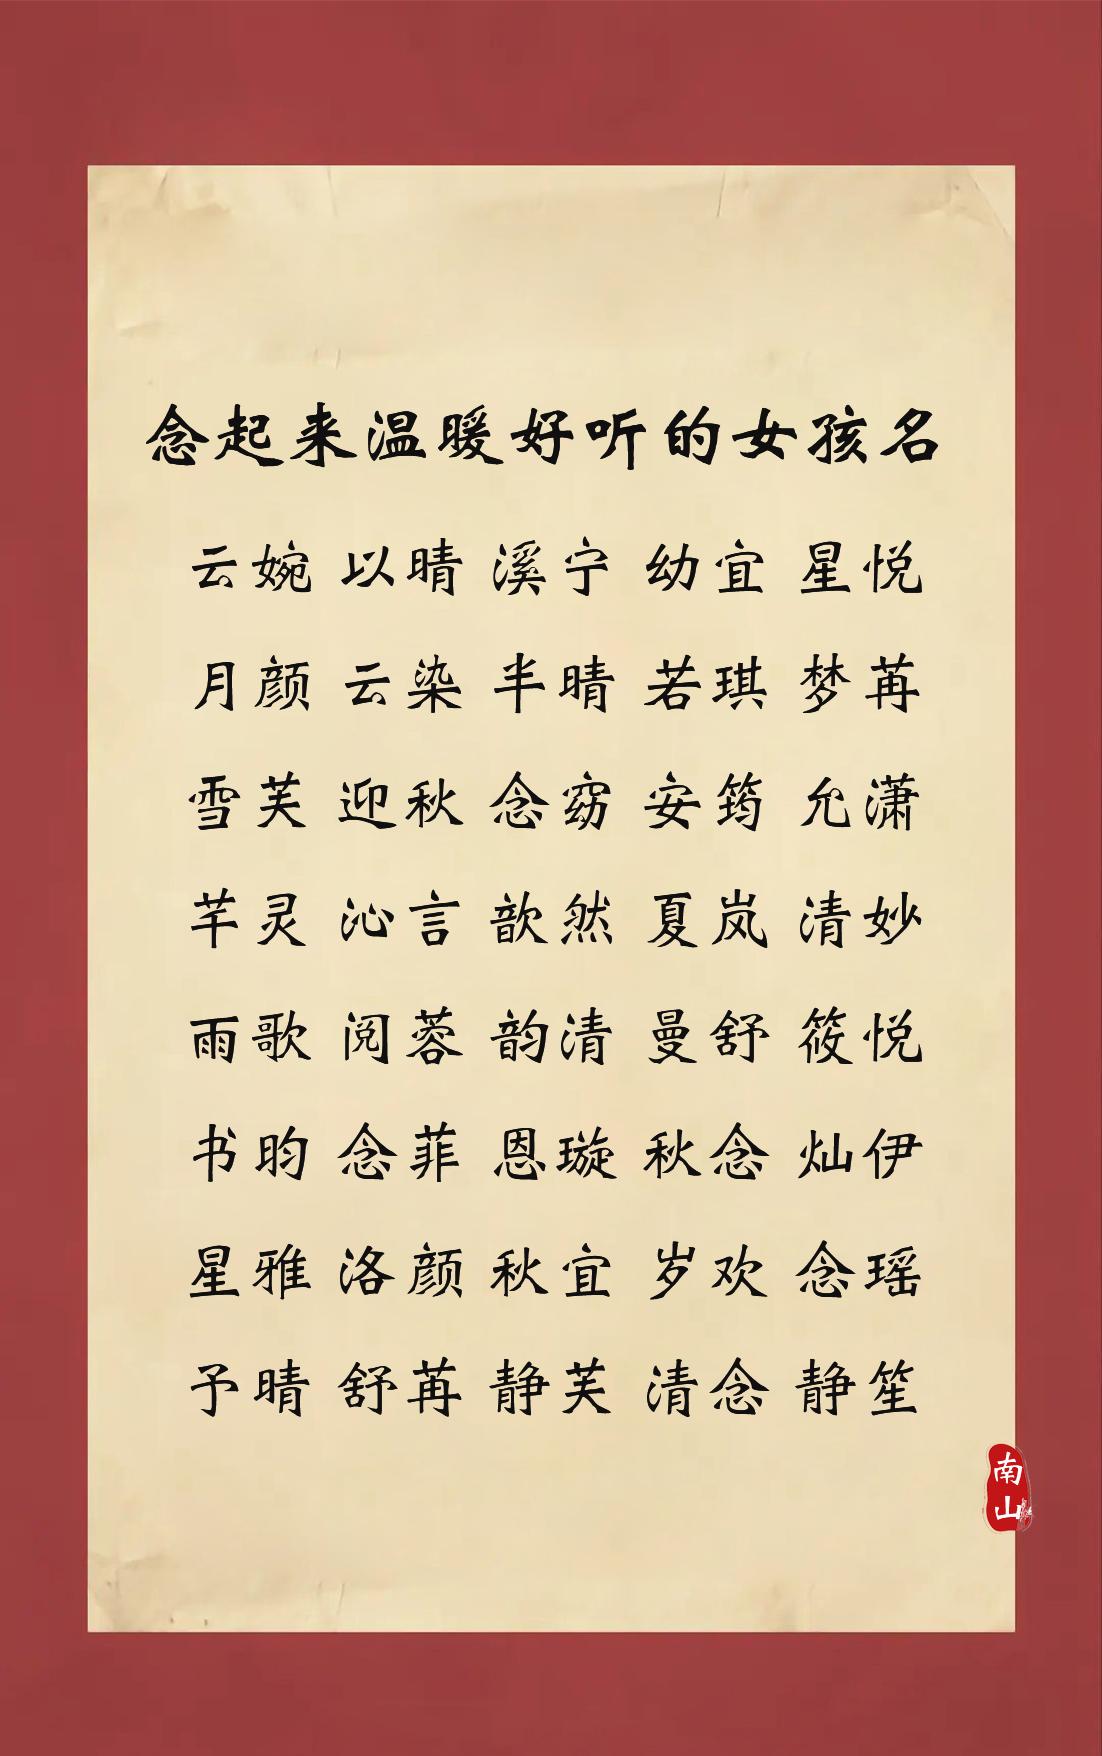 念起来温暖好听的女孩名
云婉 以晴 溪宁 幼宜 星悦
月颜 云染 半晴 若琪 梦苒
雪芙 迎秋 念窈 安筠 允潇
芊灵 沁言 歆然 夏岚 清妙
雨歌 阅蓉 韵清 曼舒 筱悦
书昀 念菲 恩璇 秋念 灿伊
星雅 洛颜 秋宜 岁欢 念瑶
予晴 舒苒 静芙 清念 静笙
南山